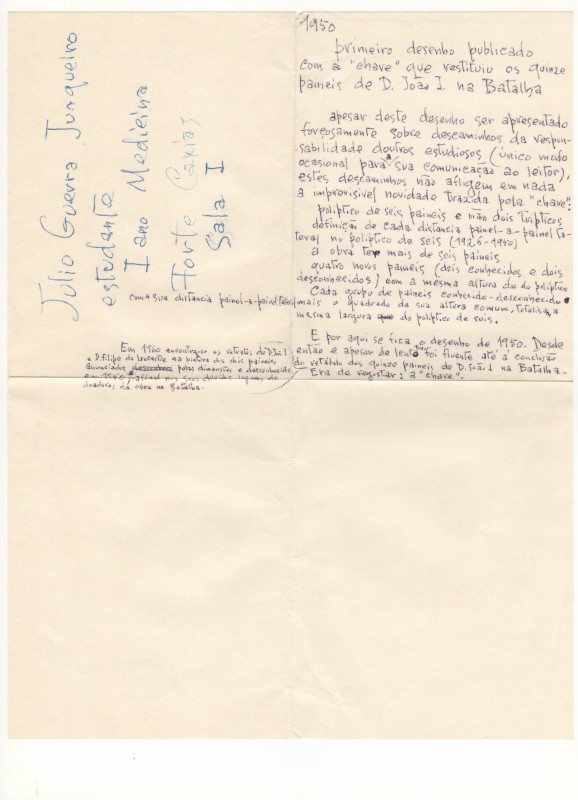 Julio Guerra Junqueiro
estudante
I ano Medicina
Forte Caxias
Sala I
1950
primeiro desenho publicado
com a "chave" que restituiu os quinze
paineis de D. João I na Batalha
apesar deste desenho ser apresentado
forçosamente sobre descaminhos da respon-
sabilidade doutros estudiosos (único modo
ocasional para a sua comunicação ao leitor),
estes descaminhos não afligem em nada
a imprevisivel novidade trazida pela "chave":
poliptico de seis paineis e não dois tripticos
definição de cada distancia painel-a-painel la-
teral no poliptico de seis (1926-1940)
a obra tem mais de seis paineis
quatro novos paineis (dois conhecidos e dois
desconhecidos) com a mesma altura da do poliptico
Cada grupo de paineis conhecido-desconhecido
com a sua distancia painel-a-painel
mais o quadrado da sua altura comum, totalisa a
mesma largura do poliptico de seis.
E por aqui se fica o desenho de 1950. Desde
então e apesar de lento foi fluente até a conclusão
do retabulo dos quinze paineis de D. João I na Batalha.
Era de registar: a "chave".
Em 1960 encontraram-se os retratos de D. João I
e D. Filipa de Lencastre na pintura dos dois paineis
anunciados pelas dimensões e desconhecidos
em 1950, afinal nos seus devidos lugares de
doadores da obra na Batalha.